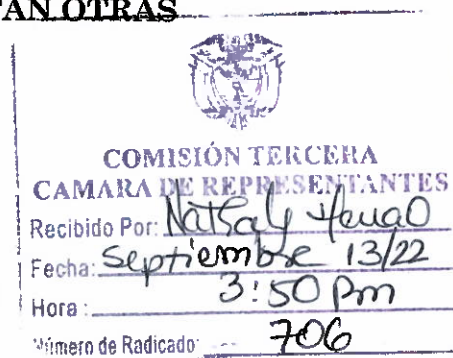 TAN OTRAS
COMISIÓN TERCERA
CAMARA DE REPRESENTANTES
Recibido Por: Nathaly Henao
Fecha: Septiembre 13/22
Hora: 3:50 pm
Número de Radicado: 706